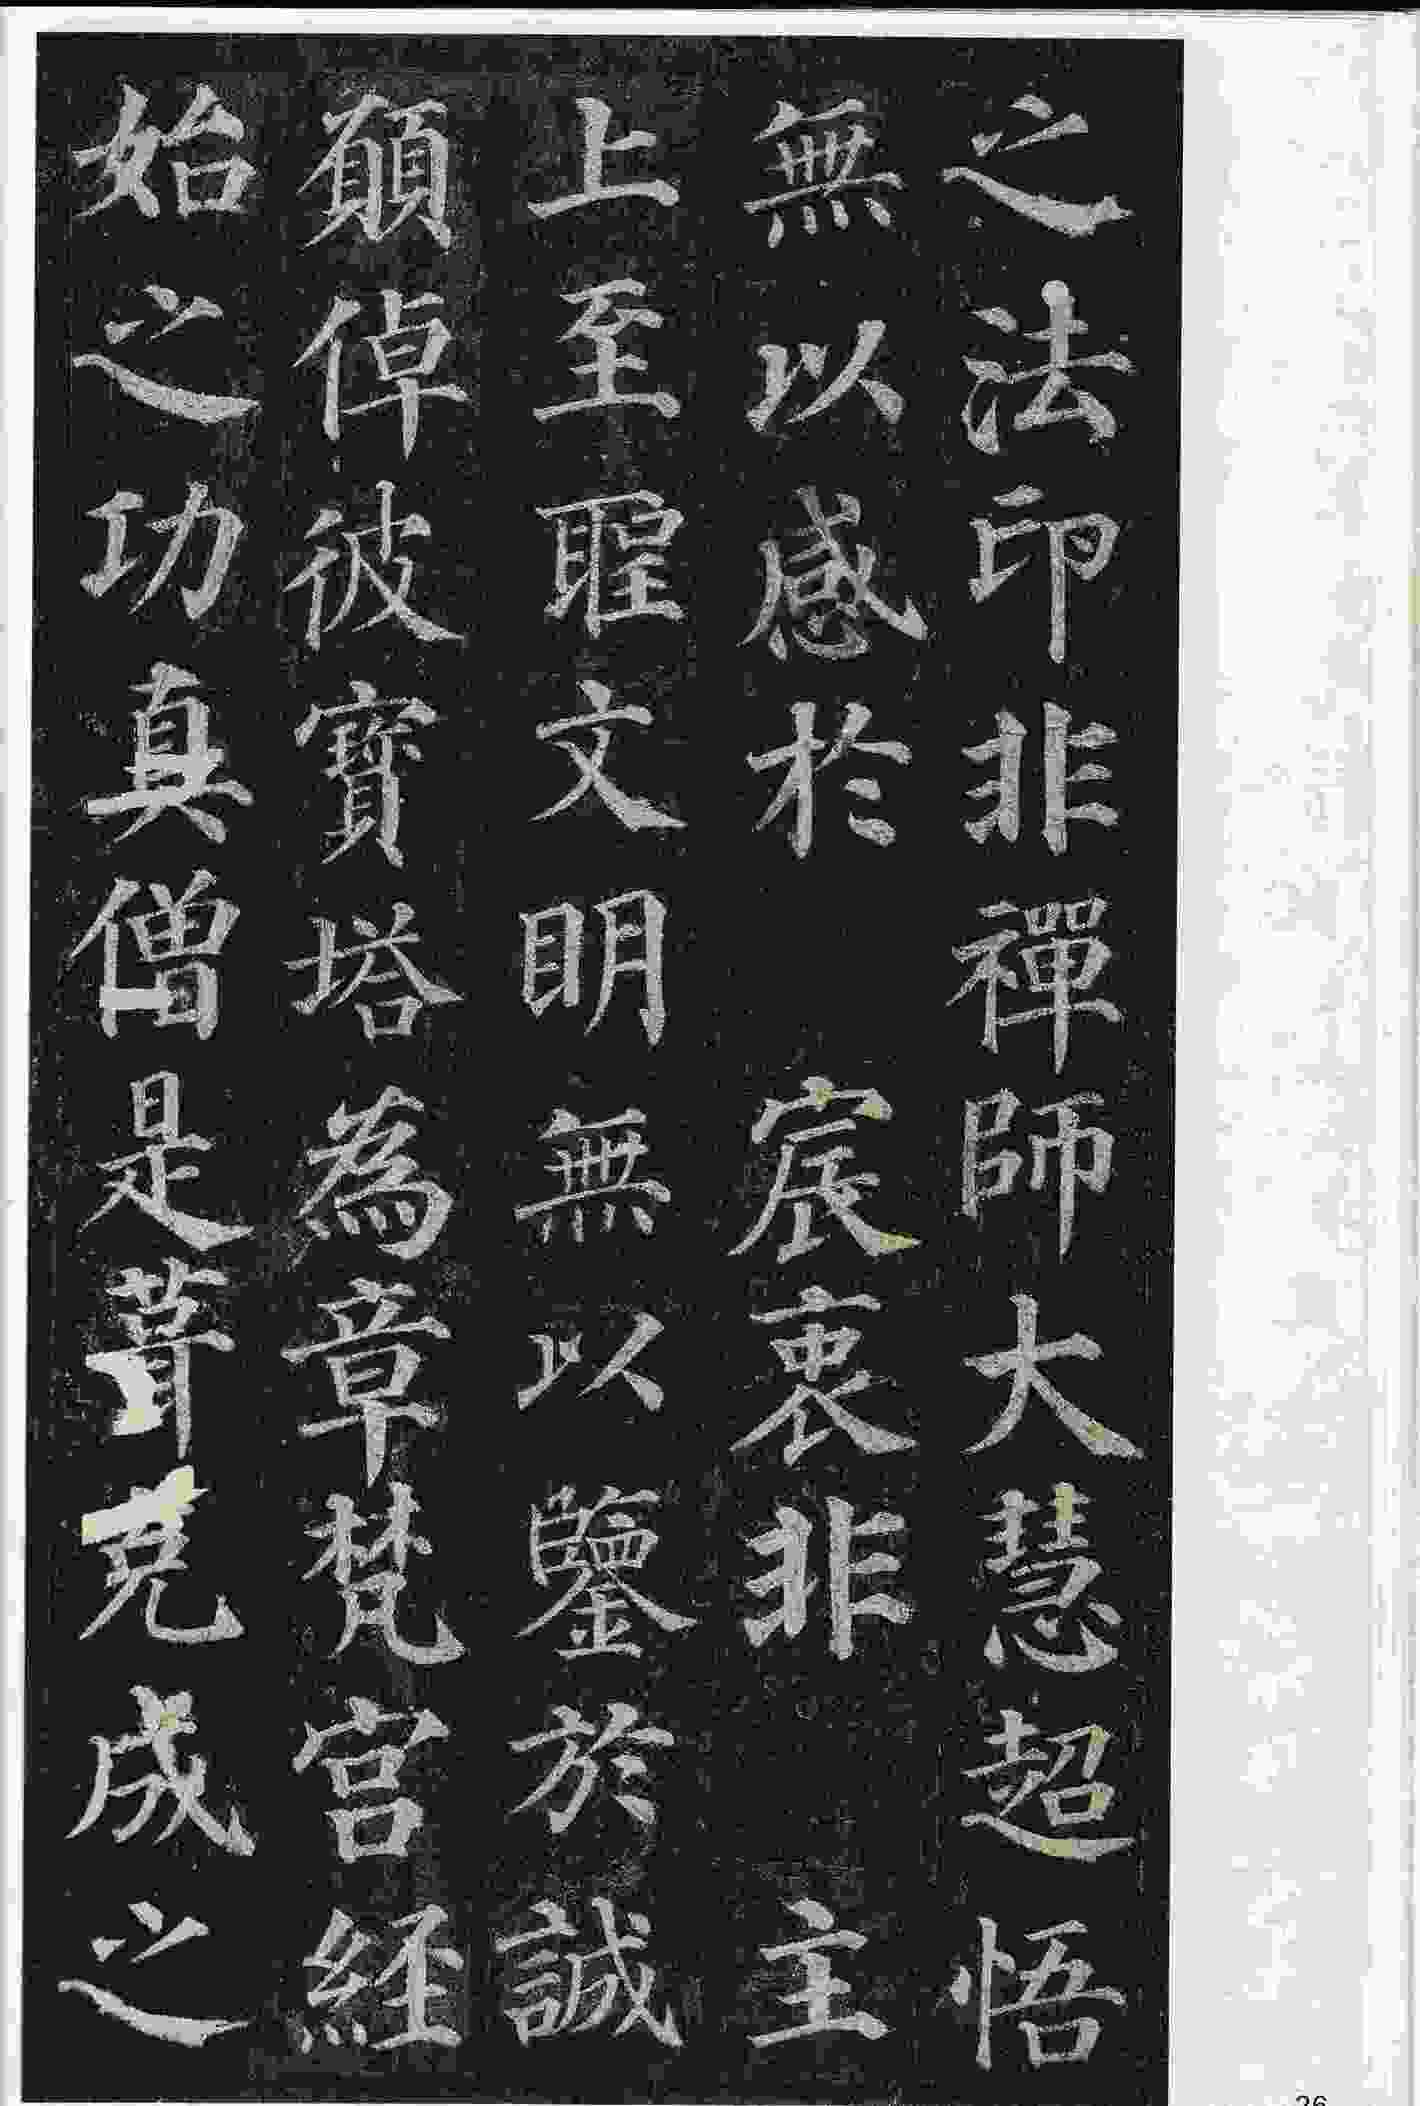 之法印非禪師大慧超悟
無以感於宸衷非主
上至聖文明無以鑒於誠
願倬彼寶塔為章梵宮經
始之功真僧是葺克成之
26